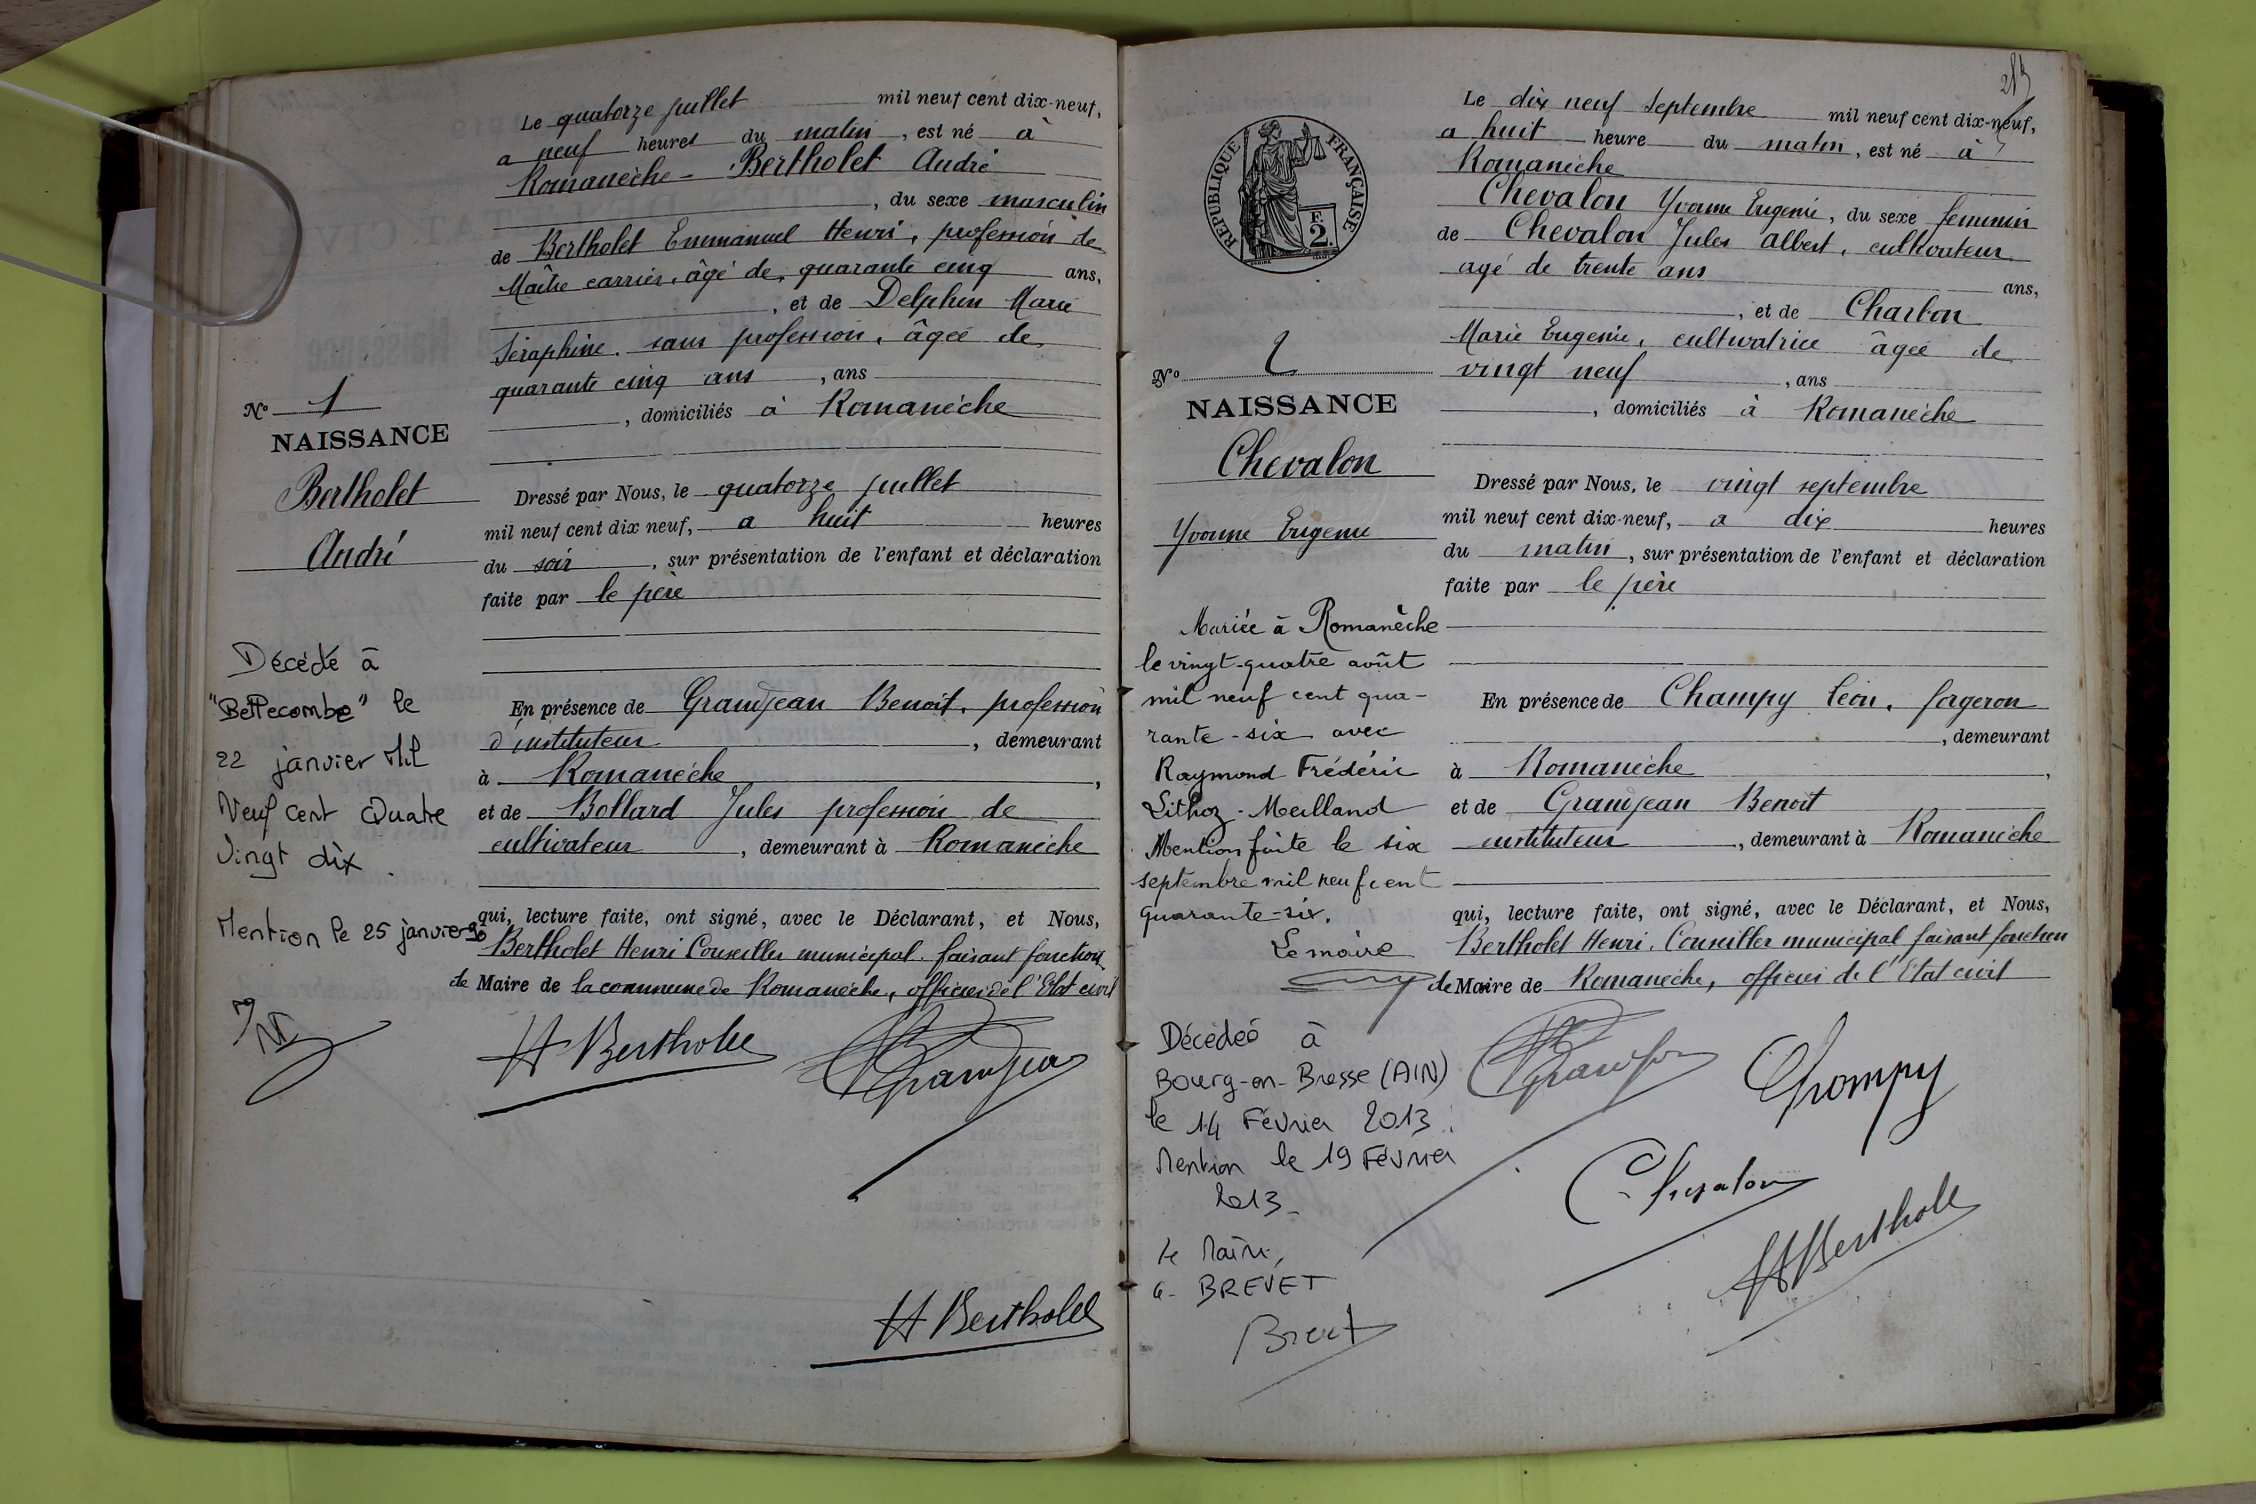 Le quatorze juillet mil neuf cent dix-neuf,
a neuf heures du matin, est né à
Romanèche - Bertholet André
, du sexe masculin
de Bertholet Emmanuel Henri, profession de
Maître carrier, âgé de, quarante cinq ans,
, et de Delphin Marie
Séraphine, sans profession, âgée de
quarante cinq ans, ans
, domiciliés à Romanèche
No 1
NAISSANCE
Bertholet
André
Dressé par Nous, le quatorze juillet
mil neuf cent dix neuf, a huit heures
du soir, sur présentation de l'enfant et déclaration
faite par le père
Décédé à
"Bellecombe" le
22 janvier Mil
Neuf cent Quatre
Vingt dix.
Mention le 25 janvier 90
En présence de Grandjean Benoit, profession
d'instituteur, demeurant
à Romanèche,
et de Bollard Jules profession de
cultivateur, demeurant à Romanèche
qui, lecture faite, ont signé, avec le Déclarant, et Nous,
Bertholet Henri Conseiller municipal faisant fonction
de Maire de la commune de Romanèche, officier de l'Etat civil
H Bertholet
Grandjean
H Bertholet
Le dix neuf Septembre mil neuf cent dix-neuf,
a huit heure du matin, est né à
Romanèche
Chevalon Yvonne Eugenie, du sexe feminin
de Chevalon Jules Albert, cultivateur
agé de trente ans ans,
, et de Charbon
Marie Eugenie, cultivatrice âgée de
vingt neuf, ans
, domiciliés à Romanèche
RÉPUBLIQUE FRANÇAISE
F.
2.
No 2
NAISSANCE
Chevalon
Yvonne Eugenie
Dressé par Nous, le vingt septembre
mil neuf cent dix-neuf, a dix heures
du matin, sur présentation de l'enfant et déclaration
faite par le père
Mariée à Romanèche
le vingt-quatre août
mil neuf cent qua-
rante-six avec
Raymond Frédéric
Lithoz-Meilland
Mention faite le six
septembre mil neuf cent
quarante-six.
Le maire
En présence de Champy Léon, forgeron
, demeurant
à Romanèche,
et de Grandjean Benoit
instituteur, demeurant à Romanèche
qui, lecture faite, ont signé, avec le Déclarant, et Nous,
Bertholet Henri, Conseiller municipal faisant fonction
de Maire de Romanèche, officier de l'Etat civil
Décédée à
Bourg-en-Bresse (AIN)
le 14 Février 2013.
Mention le 19 Février
2013_
Le Maire,
G. BREVET
Brevet
Grandjean
Champy
Chevalon
H Bertholet